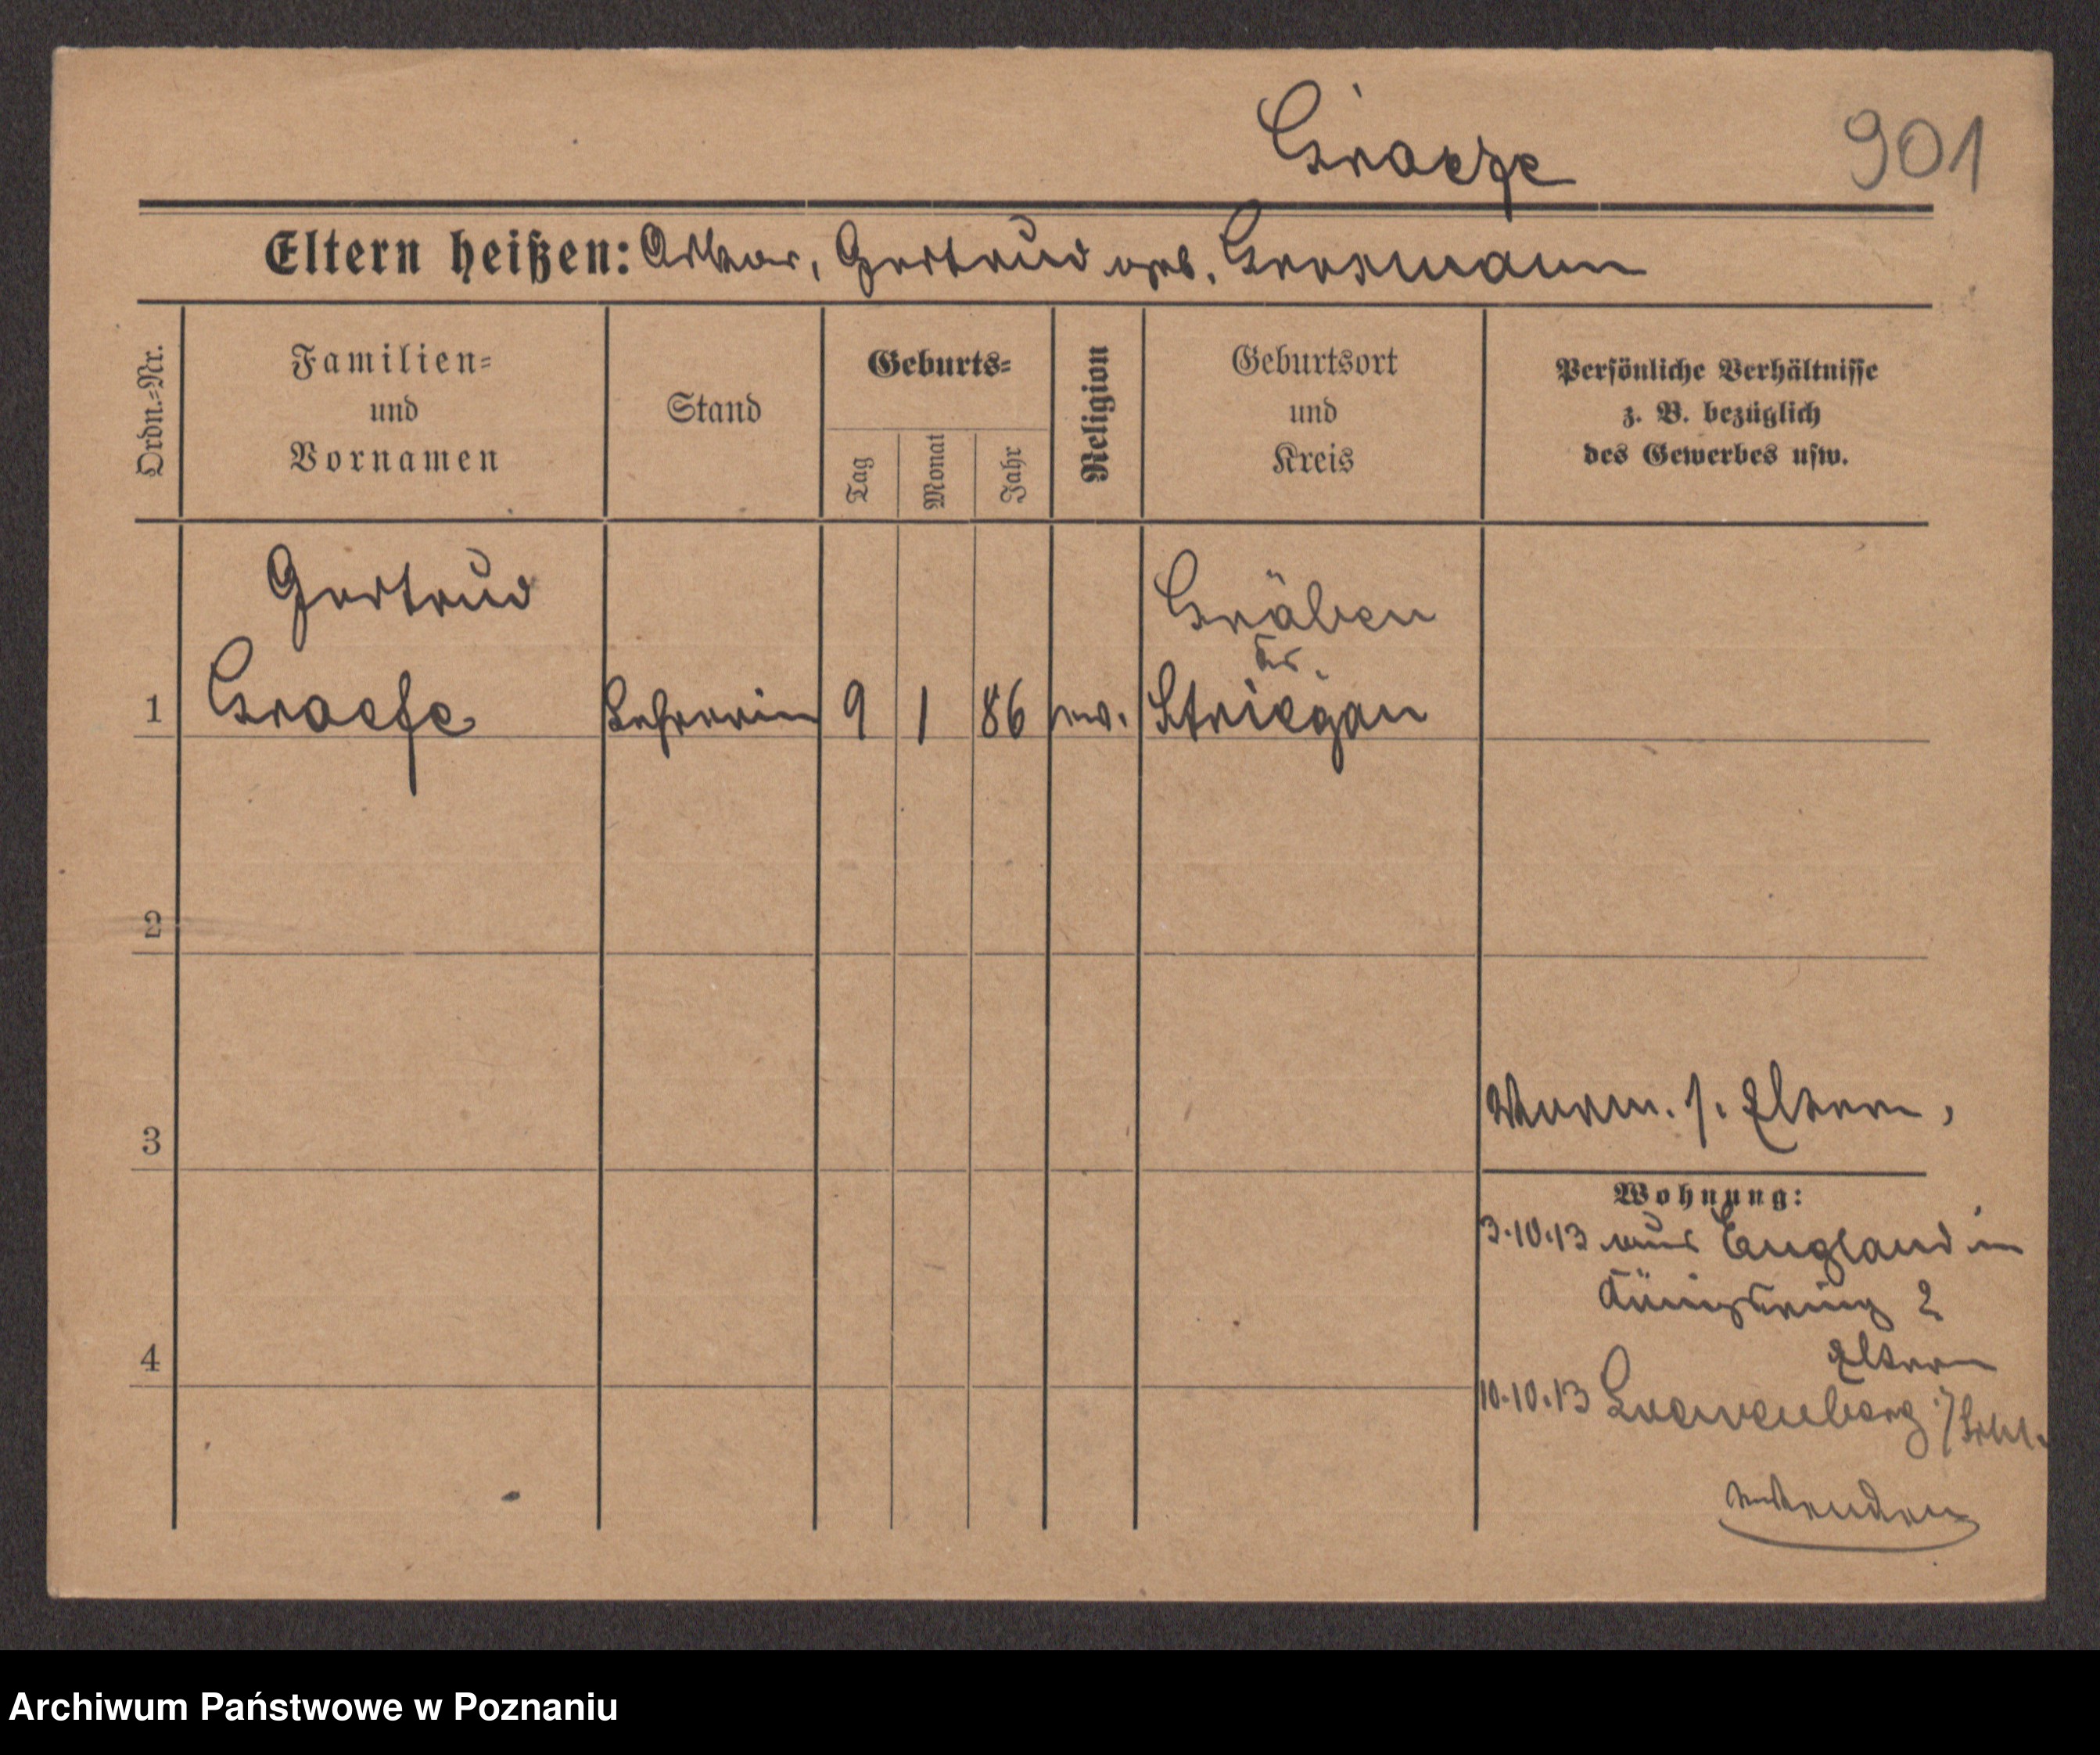 Graefe
901
Eltern heißen: Oskar, Gertrud geb. Grosmann
Ordn.=Nr.
Familien=
und
Vornamen
Stand
Geburts=
Tag
Monat
Jahr
Religion
Geburtsort
und
Kreis
Persönliche Verhältnisse
z. B. bezüglich
des Gewerbes usw.
Gertrud
Gräben
Kr.
1 Graefe Lehrerin 9 1 86 ev. Striegau
2
3
Verm. s. Eltern,
Wohnung:
3.10.13 aus England in
Königsring 2
Eltern
4
10.10.13 Loewenberg i/Schl.
wenden
Archiwum Państwowe w Poznaniu